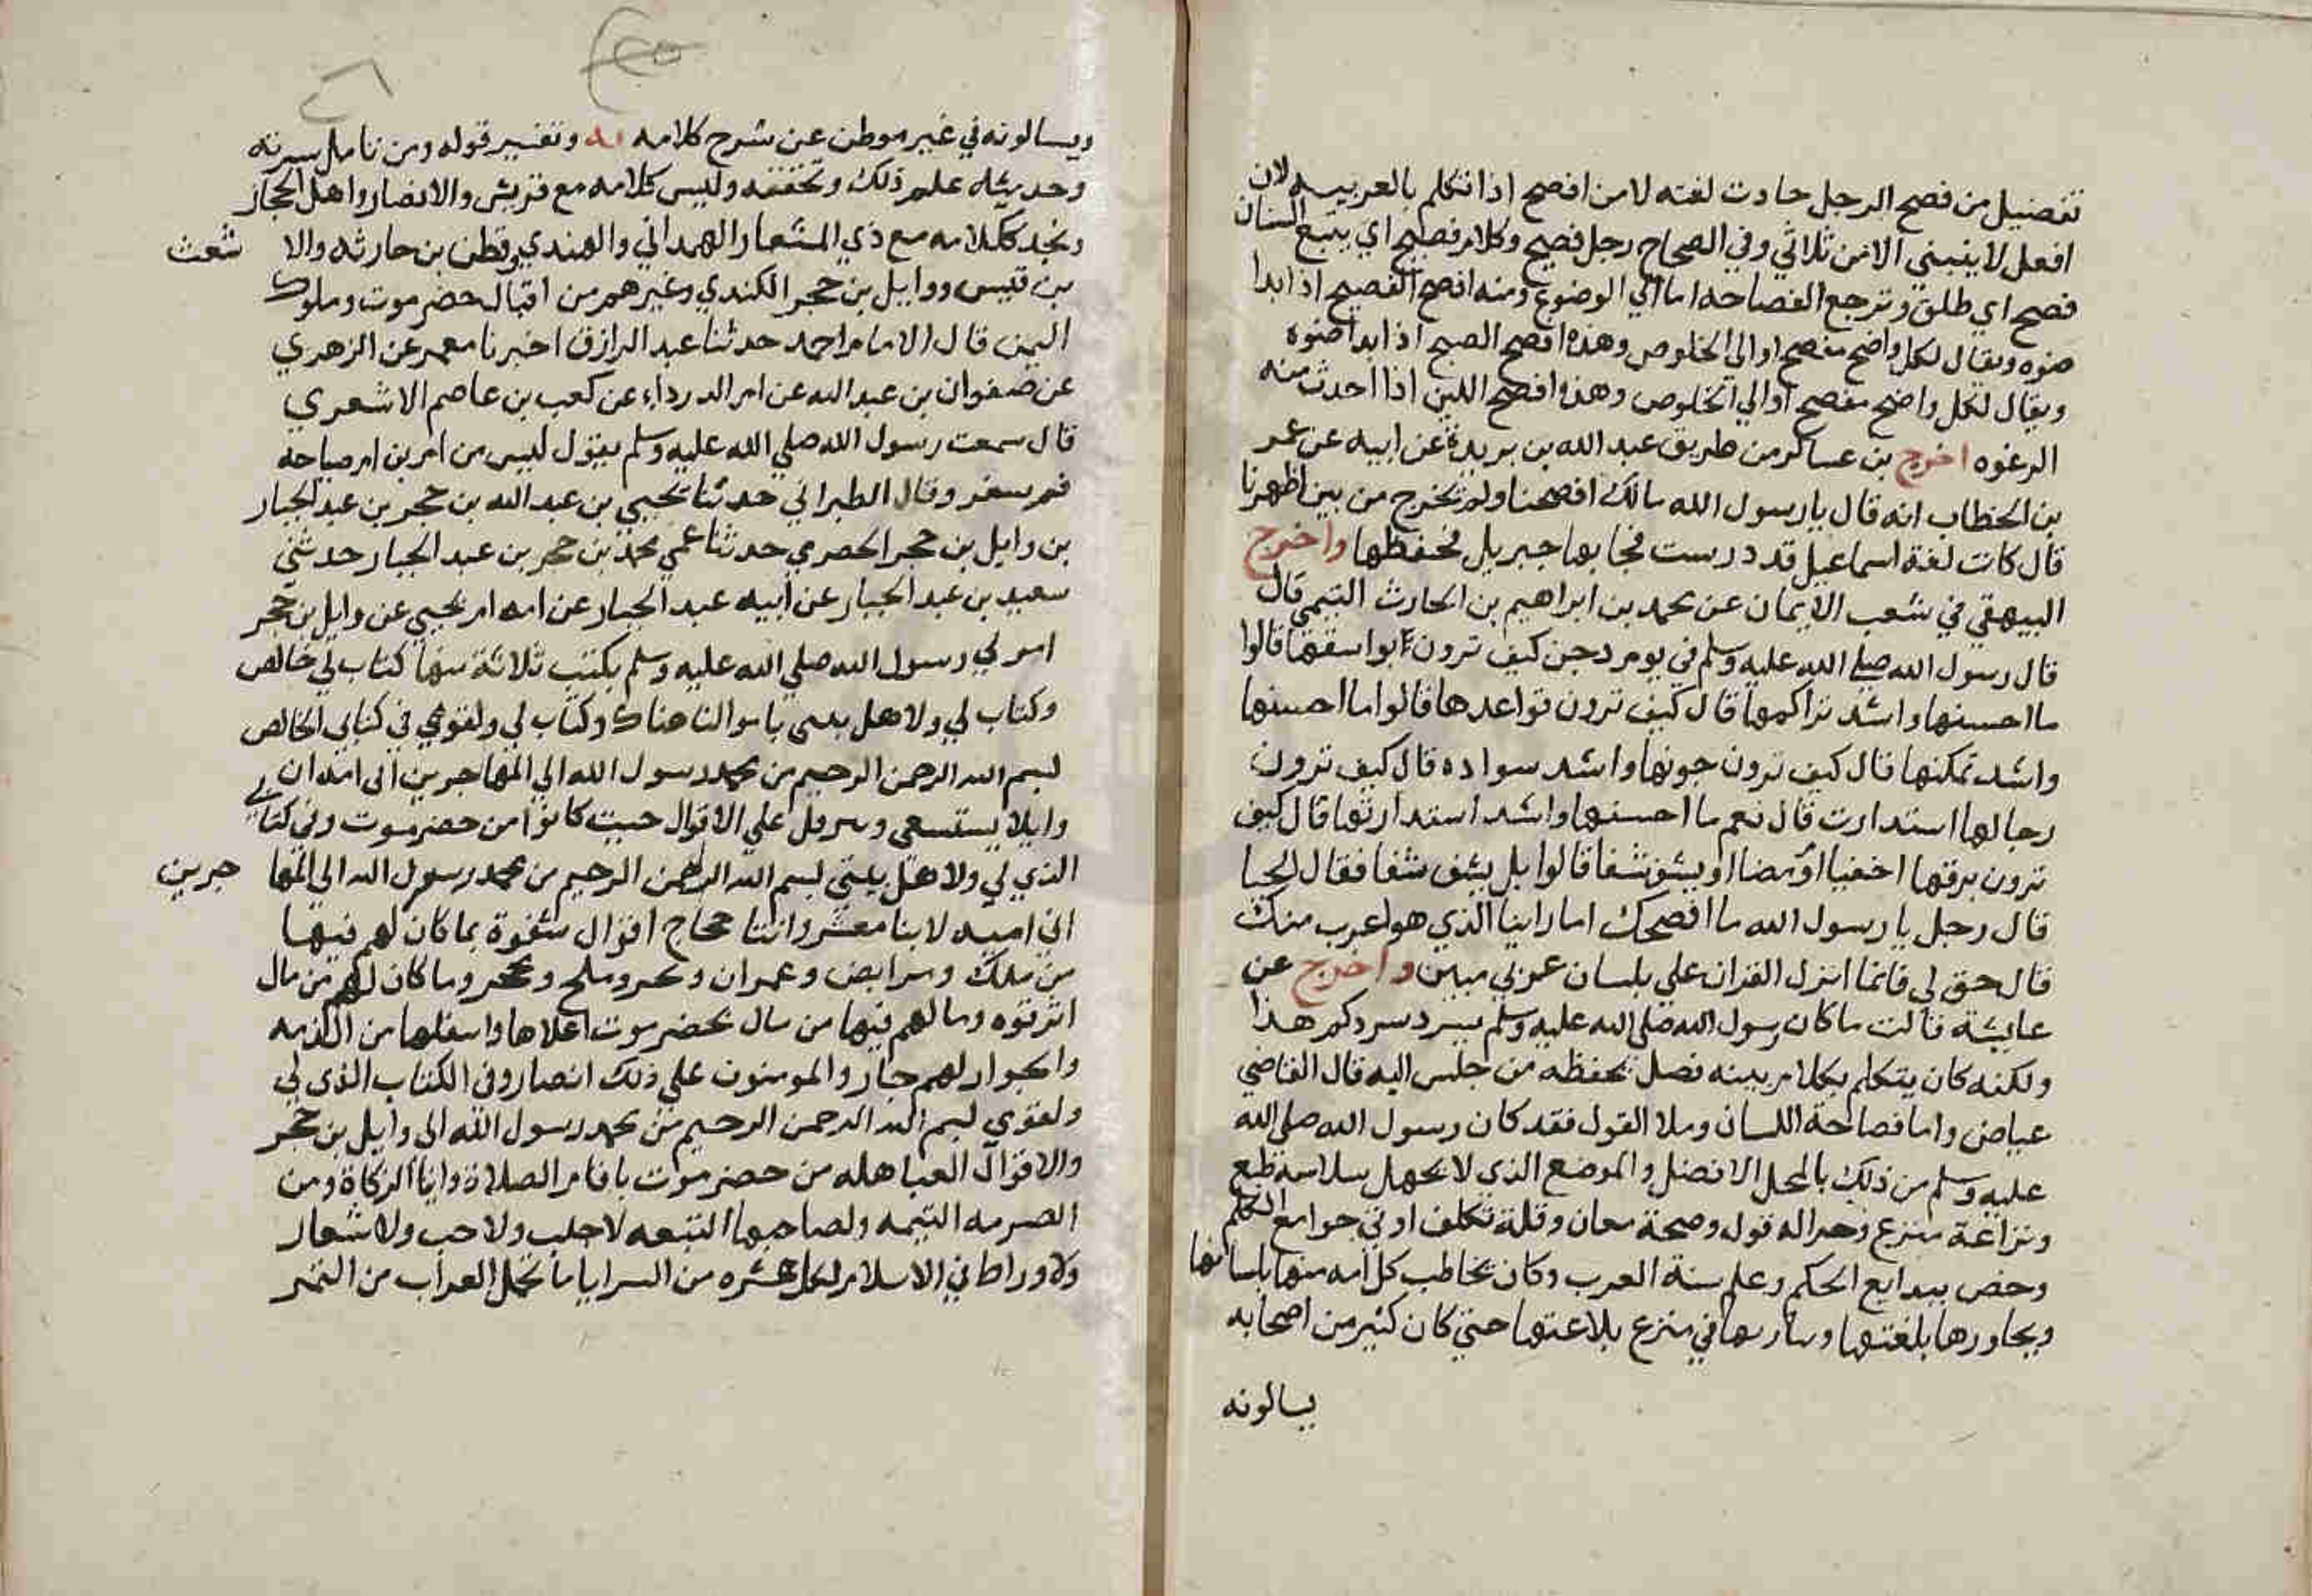 تفضيل من فصح الرجل جادت لغته لا من افصح اذا تكلم بالعربيه لان
افعل لا ينبني الا من ثلاثي وفي الصحاح رجل فصيح وكلام فصيح اي يتبع السنان
فصيح اي طلق وترجع الفصاحه اما الي الوضوع ومنه افصح الفصيح اذا ابدا
ضوه ويقال لكل واضح مفصح اوالي الخلوص وهذه افصح الصبح اذا ابدا ضوه
ويقال لكل واضح مفصح اوالي الخلوص وهذه افصح اللبن اذا احدث منه
الرغوه اخرج بن عساكر من طريق عبد الله بن بريدة عن ابيه عن عمر
بن الخطاب انه قال يا رسول الله مالك افصحنا ولم تخرج من بين اظهرنا
قال كانت لغة اسماعيل قد درست فجا بها جبريل فحفظها واخرج
البيهقي في شعب الايمان عن محمد بن ابراهيم بن الحارث التيمي قال
قال رسول الله صلي الله عليه وسلم في يوم دجن كيف ترون بواسقها قالوا
ما احسنها واشد تراكمها قال كيف ترون قواعدها قالوا ما احسنها
واشد تمكنها قال كيف ترون جونها واشد سواده قال كيف ترون
رحالها استدارت قال نعم ما احسنها واشد استدارتها قال كيف
ترون برقها اخفيا او مضا او يشق شقا قالوا بل يشق شقا فقال الحيا
قال رجل يا رسول الله ما افصحك اما راينا الذي هو اعرب منك
قال حق لي فانما انزل القران علي بلسان عربي مبين واخرج عن
عايشة قالت ما كان رسول الله صلي الله عليه وسلم يسرد سردكم هذا
ولكنه كان يتكلم بكلام بينه فصل يحفظه من جلس اليه قال القاضي
عياض واما فصاحة اللسان وملا القول فقد كان رسول الله صلي الله
عليه وسلم من ذلك بالمحل الافضل والموضع الذي لا يجهل سلاسه طبع
ونزاعة منزع وحراله قول وصحة معان وقلة تكلف اوتي جوامع الكلم
وخص ببدايع الحكم وعلم سنة العرب وكان يخاطب كل امه منها بلسانها
ويحاورها بلغتها ويباريها في منزع بلاغتها حتي كان كثير من اصحابه
يسالونه
ويسالونه في غير موطن عن شرح كلامه وتفسير قوله ومن تامل سيرته
وحديثه علم ذلك وتحققه وليس كلامه مع قريش والانصار واهل الحجاز
ونجد ككلامه مع ذي المشعار الهمداني والهندي وقطن بن حارثه والا شعث
بن قيس ووايل بن حجر الكندي وغيرهم من اقيال حضرموت وملوك
اليمن قال الامام احمد حدثنا عبد الرازق اخبرنا معمر عن الزهري
عن صفوان بن عبد الله عن ام الدرداء عن كعب بن عاصم الاشعري
قال سمعت رسول الله صلي الله عليه وسلم يقول ليس من امر بن ام صياحة
فم سفر وقال الطبراني حدثنا يحيي بن عبد الله بن حجر بن عبد الجبار
بن وايل بن حجر الحصري حدثنا عمي محمد بن حجر بن عبد الجبار حدثني
سعيد بن عبد الجبار عن ابيه عبد الجبار عن امه ام يحيي عن وايل بن حجر
امر لي رسول الله صلي الله عليه وسلم بكتب ثلاثة منها كتاب لي خالص
وكتاب لي ولاهل بيتي باموالنا هناك وكتاب لي ولقومي في كتابي الخالص
بسم الله الرحمن الرحيم من محمد رسول الله الي المهاجر بن ابي اميه ان
وايلا يستسعي ويترفل علي الاقوال حيث كانوا من حضرموت وفي كتابي
الذي لي ولاهل بيتي بسم الله الرحمن الرحيم من محمد رسول الله الي المها جربن
ابي اميه لابنا معشر وابنا حجاج اقوال شنوة بما كان لهم فيها
من ملك ومرابض وعمران وبحر وملح ومحجر وما كان لهم من مال
اترثوه وما لهم فيها من مال بحضرموت اعلاها واسفلها من الذمه
والجوار لهم جار والمومنون علي ذلك انصار وفي الكتاب الذي لي
ولقومي بسم الله الرحمن الرحيم من محمد رسول الله الي وايل بن حجر
والاقوال العباهله من حضرموت باقام الصلاة وايتا الزكاة ومن
الصرمه التيمه ولصاحبها التبعه لا جلب ولا جب ولا شعار
ولا وراط في الاسلام لكل عشره من السرايا ما تحمل العراب من التمر